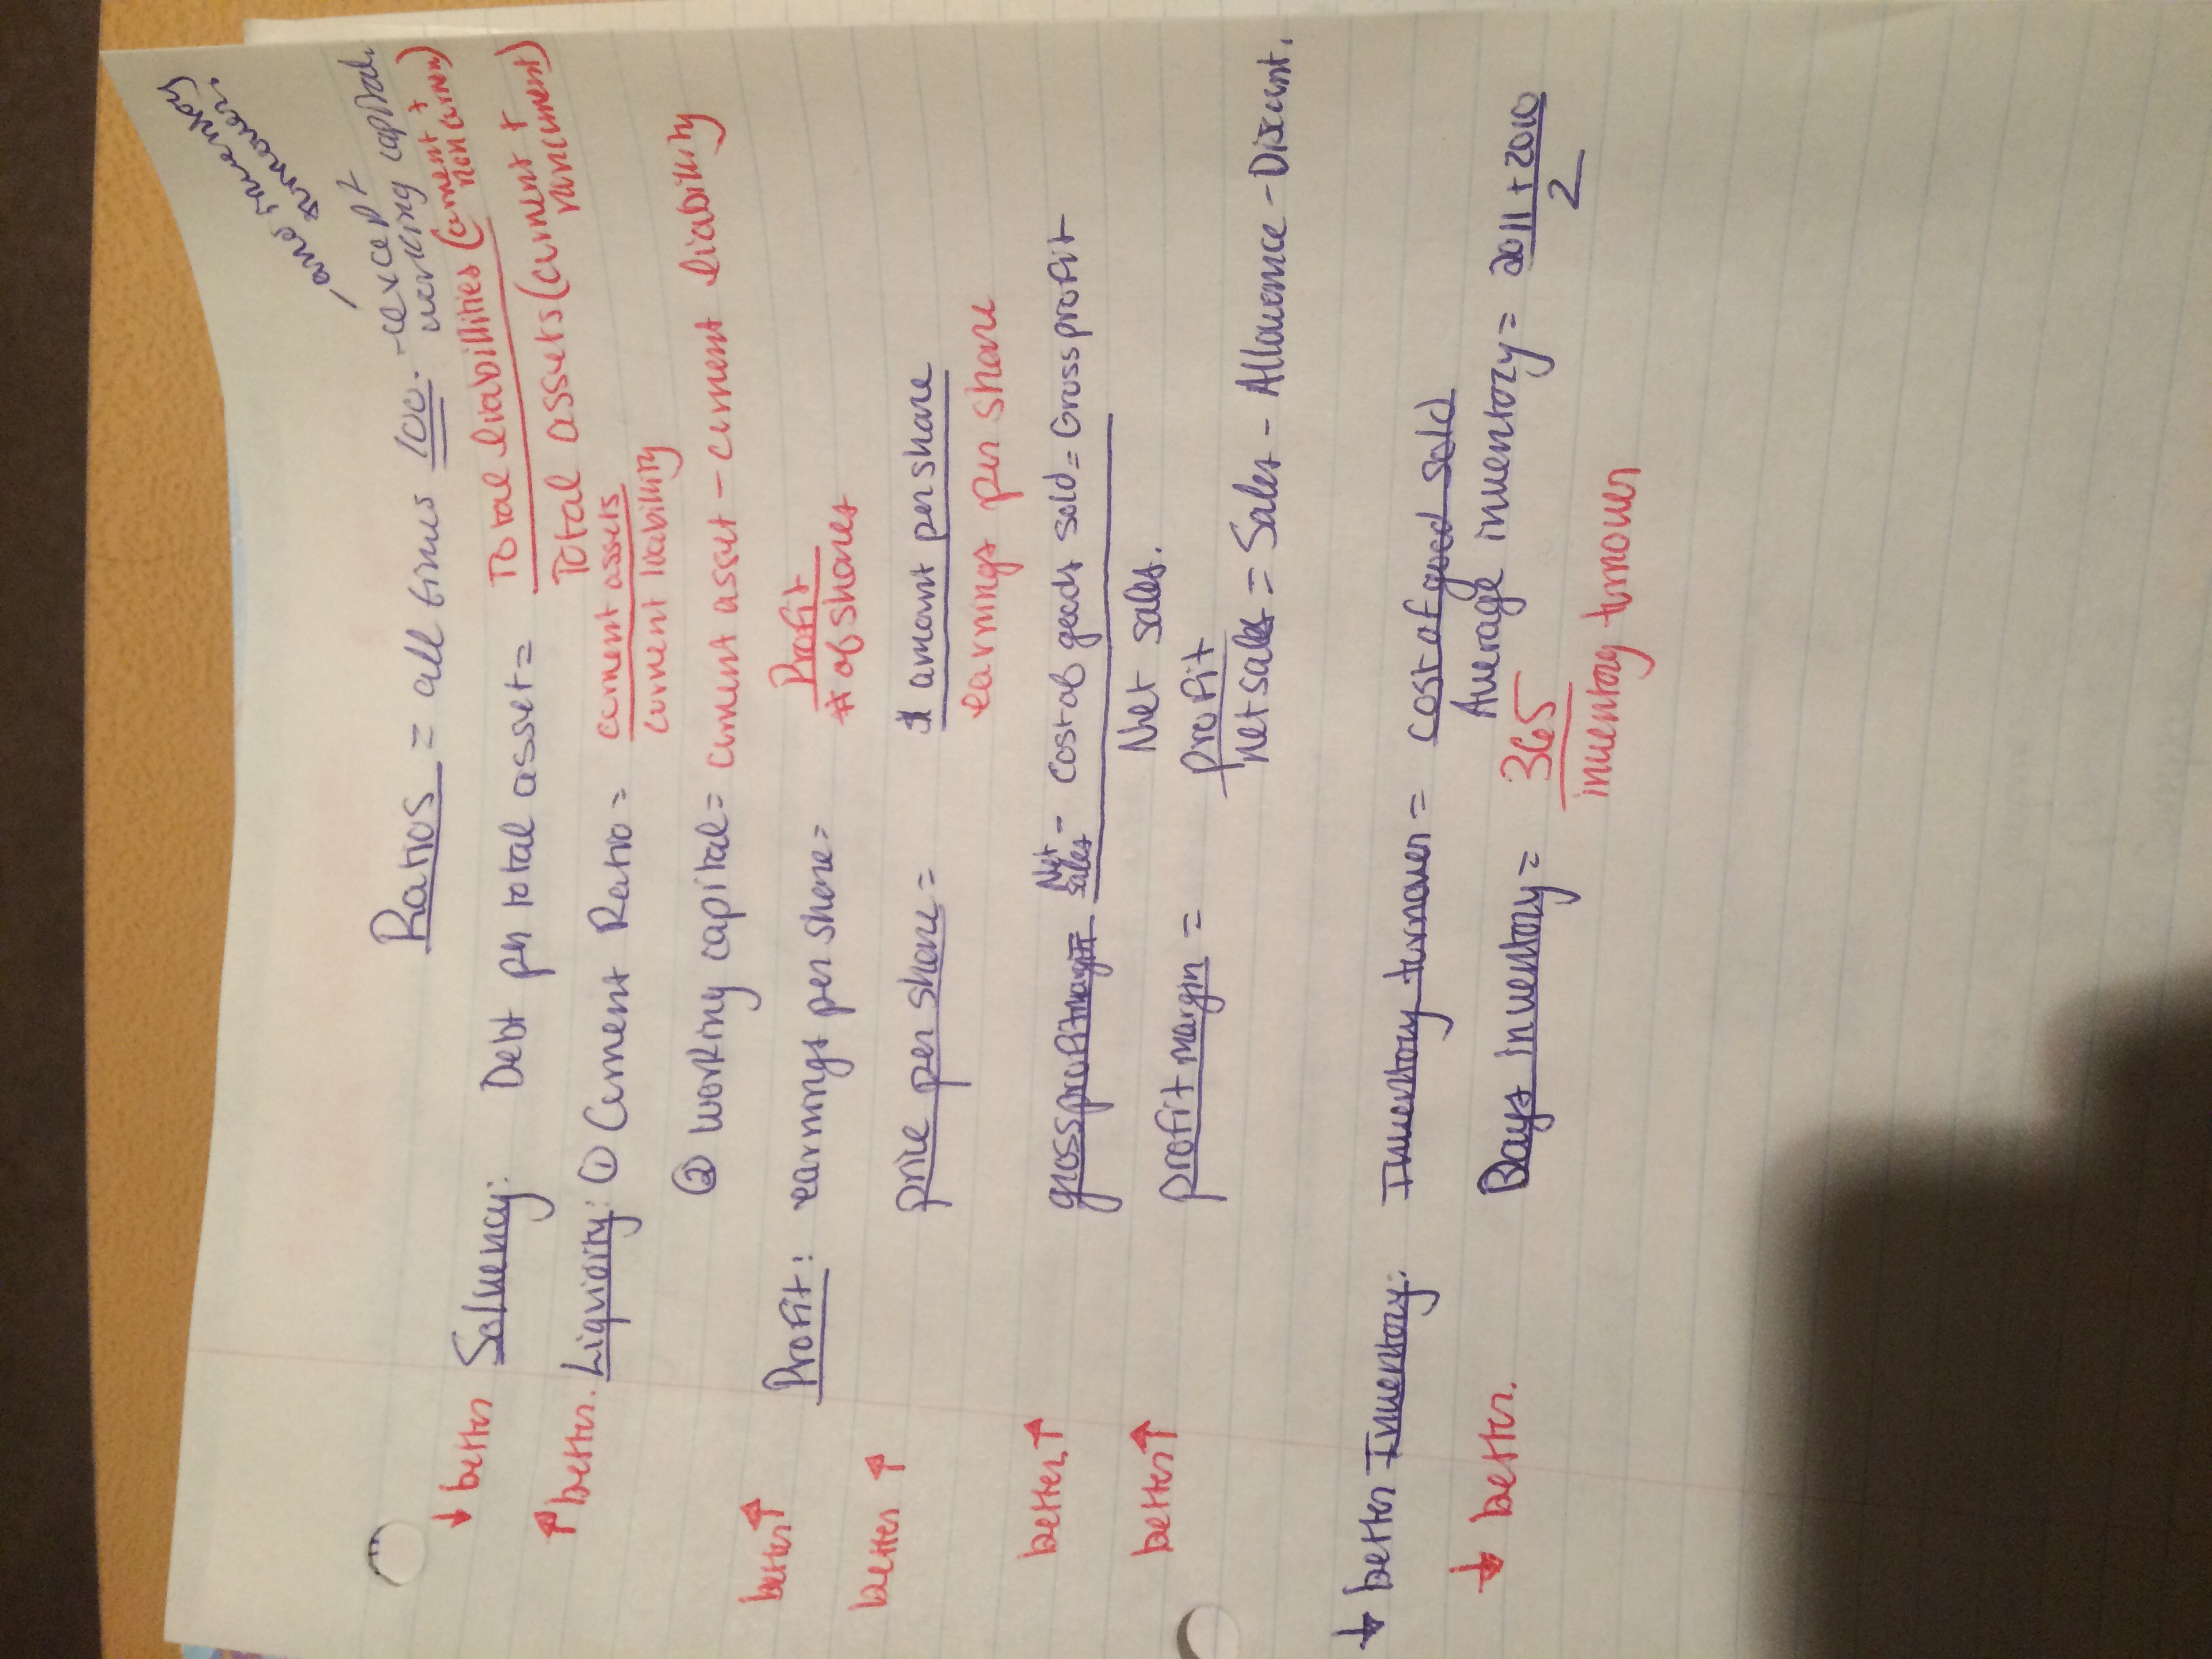 Ratios = all times 100. - except working capital.
/and inventory turnover.
↓ better Solvency: Debt per total asset = Total liabillities (current + non curren)
Total assets (current + noncurrent)
↑ better. Liquidity: ① Current Ratio = current assets
current liability
② working capital = current asset - current liability
better ↑ Profit: earnings per share = Profit
# of shares
better ↑ price per share = $ amount per share
earnings per share
better ↑ gross profit margin Net sales - cost of goods sold = Gross profit
Net sales.
better ↑ profit margin = profit
net sales = Sales - Allowence - Discount.
↓ better Inventory: Inventory turnover = cost of good sold
Average inventory = 2011 + 2010
2
↓ better. Days inventory = 365
inventory turnover